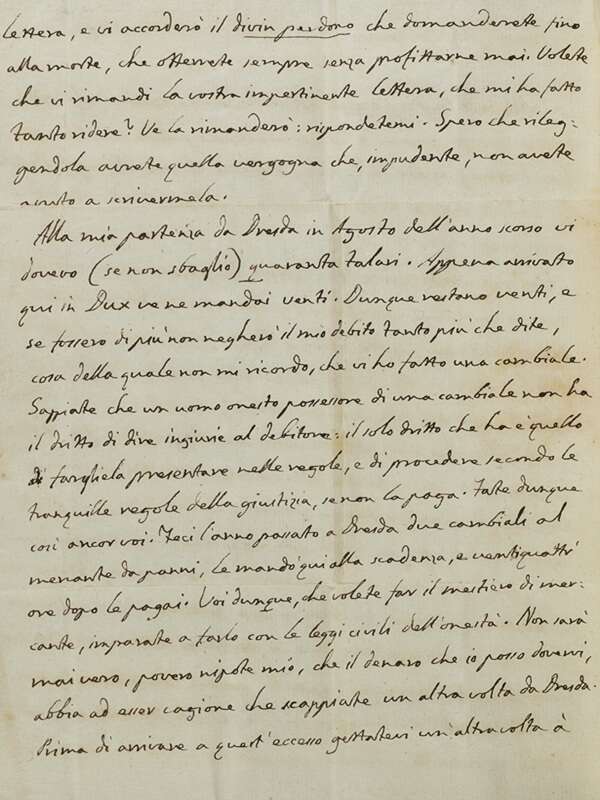 lettera, e vi accorderò il divin perdono che domanderete fino
alla morte, che otterrete sempre senza profittarne mai. Volete
che vi rimandi la vostra impertinente lettera, che mi ha fatto
tanto ridere? Ve la rimanderò: rispondetemi. Spero che rileg-
gendola avrete quella vergogna che, impudente, non avete
avuto a scrivermela.
Alla mia partenza da Dresda in Agosto dell'anno scorso vi
dovevo (se non sbaglio) quaranta talari. Appena arrivato
qui in Dux ve ne mandai venti. Dunque restano venti, e
se fossero di più non negherò il mio debito tanto più che dite,
cosa della quale non mi ricordo, che vi ho fatto una cambiale.
Sappiate che un uomo onesto possessore di una cambiale non ha
il dritto di dire ingiurie al debitore: il solo dritto che ha è quello
di fargliela presentare nelle regole, e di procedere secondo le
tranquille regole della giustizia, se non la paga. Fate dunque
così ancor voi. Feci l'anno passato a Dresda due cambiali al
mercante da panni, le mandò qui alla scadenza, e ventiquattr'
ore dopo le pagai. Voi dunque, che volete far il mestiero di mer-
cante, imparate a farlo con le leggi civili dell'onestà. Non sarà
mai vero, povero nipote mio, che il denaro che io posso dovervi,
abbia ad esser cagione che scappiate un altra volta da Dresda.
Prima di arrivare a quest'eccesso gettatevi un'altra volta à